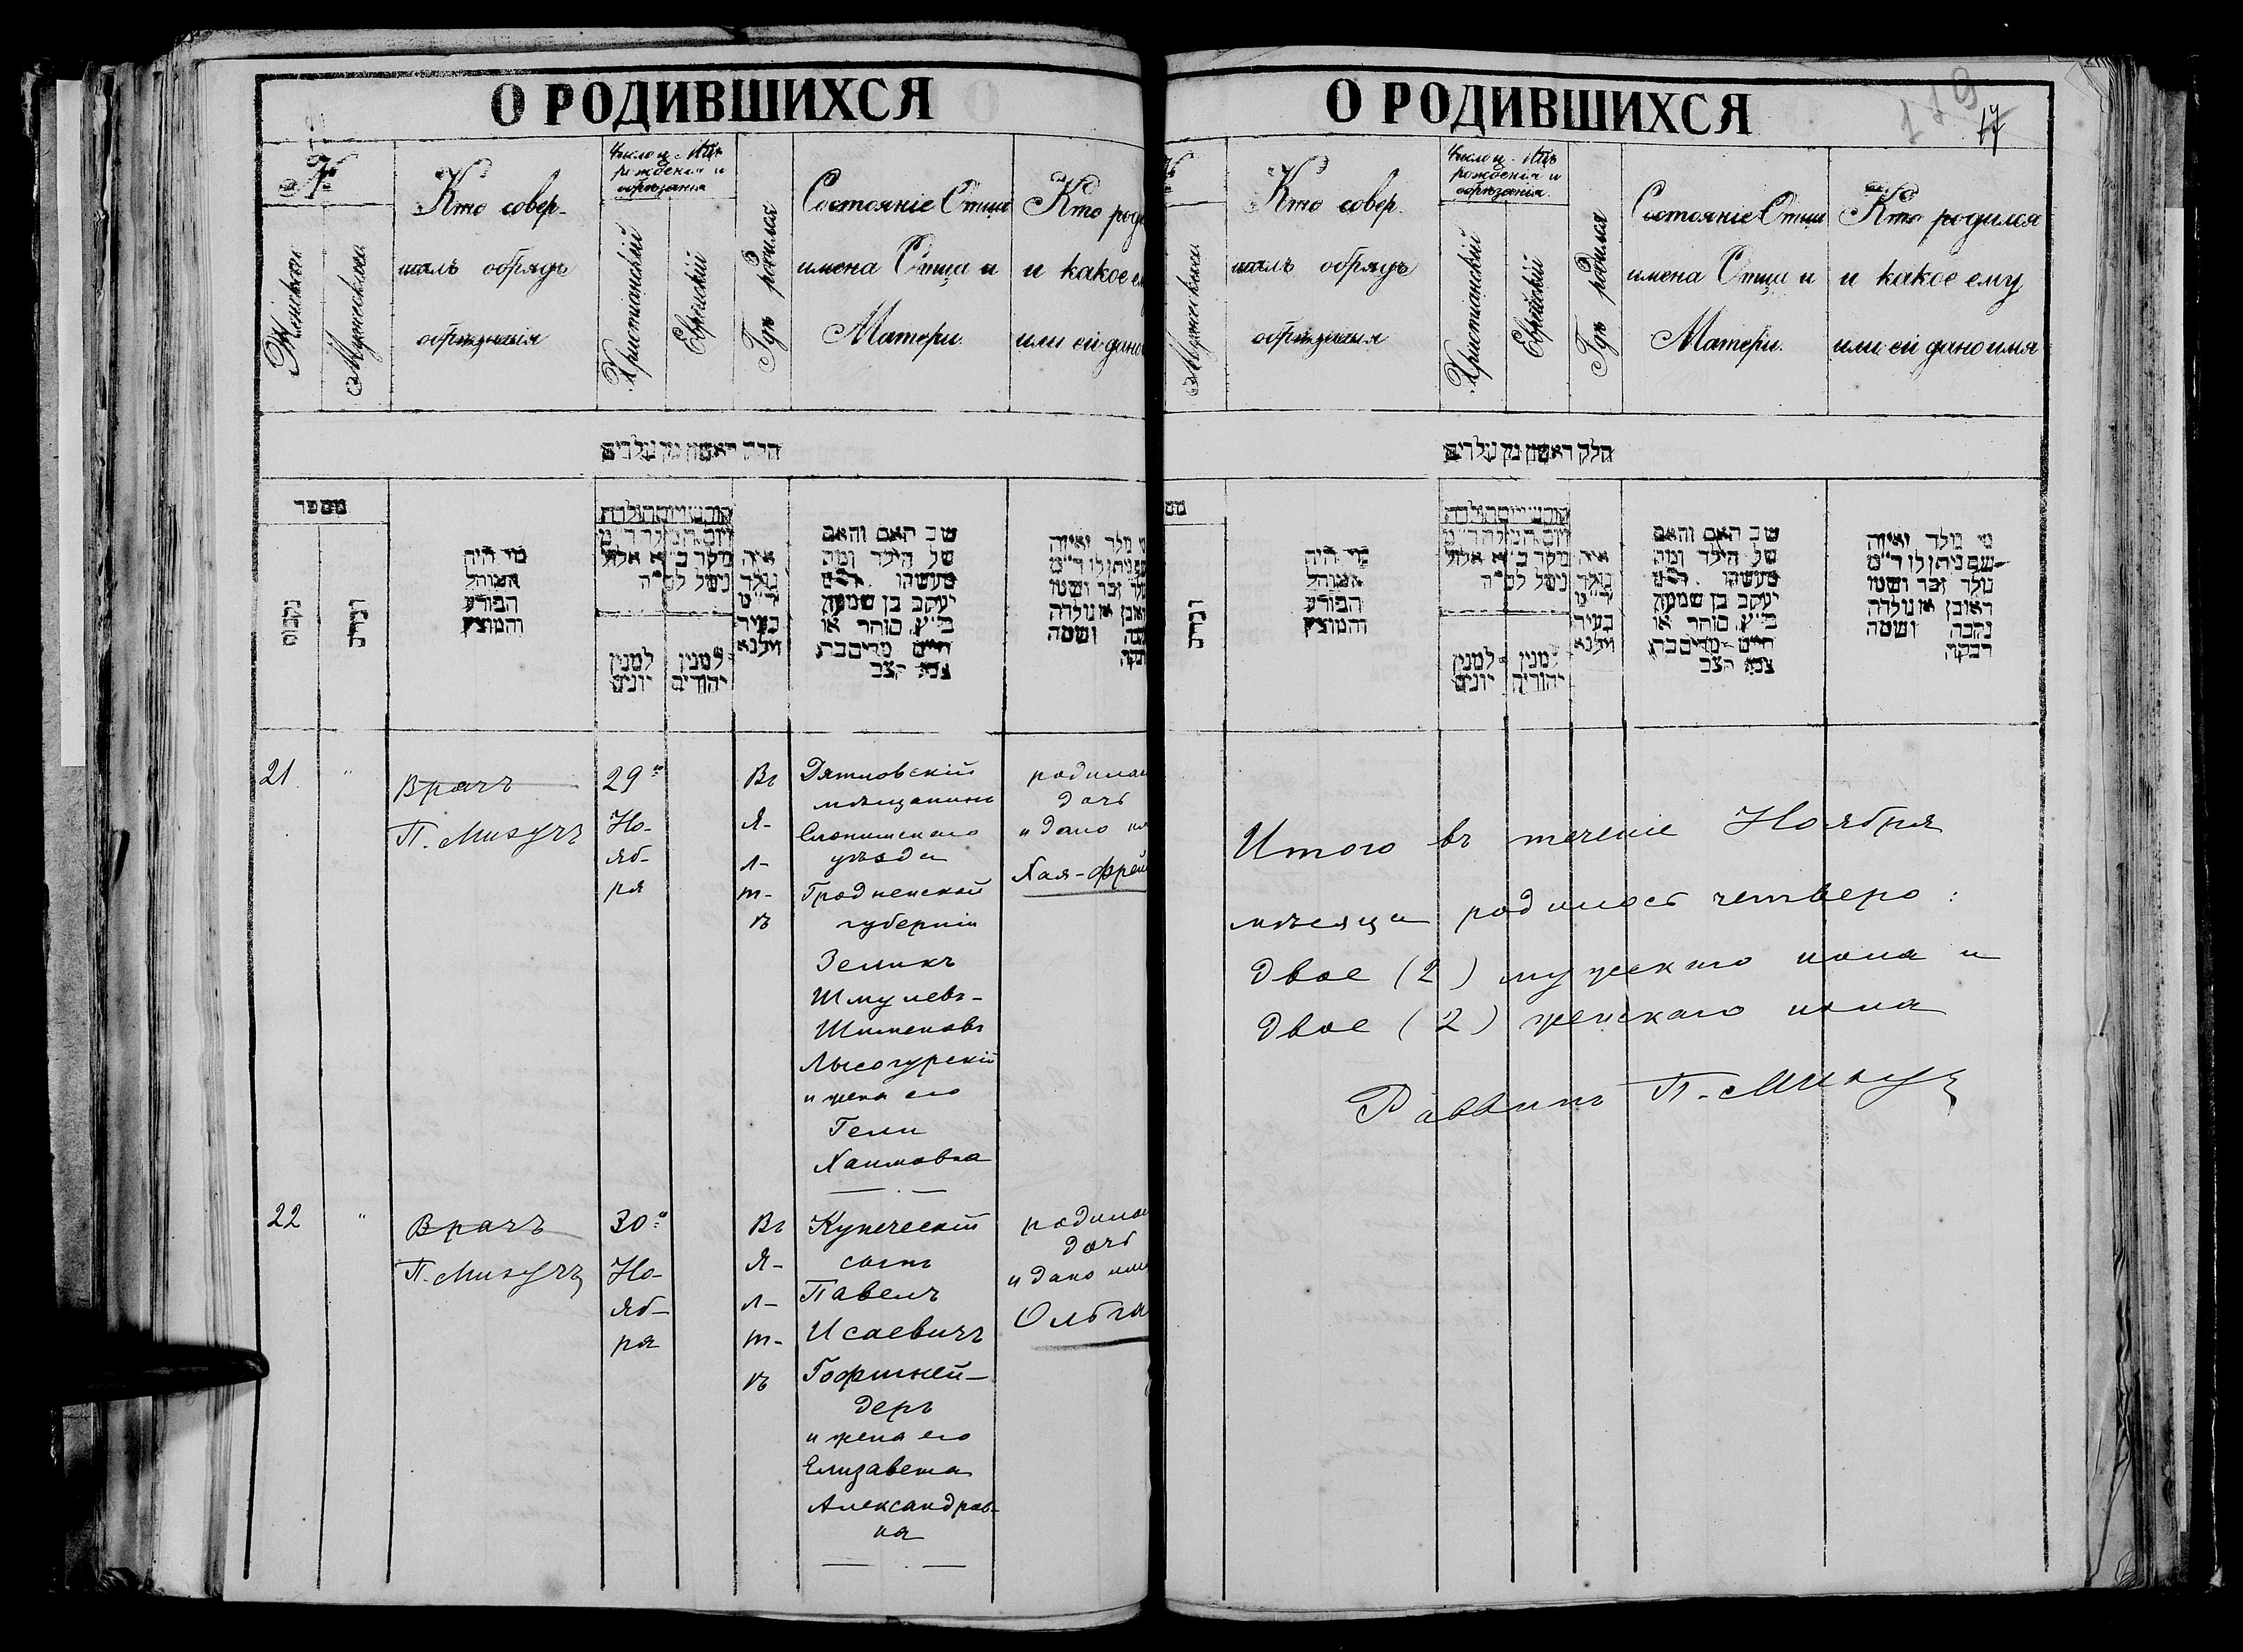 О РОДИВШИХСЯ
№
Женскаго
Мужескаго
Кто совер-
шалъ обрядъ
обрѣзанія
Число и Мцъ
рожденія и
обрѣзанія
Христіанскій
Еврейскій
Гдѣ родился
Состояніе Отца
имена Отца и
Матери.
Кто род
и какое ем
или ей дано
חלק ראשון מן נולדים
מספר
נקבות
זכרים
מי היה
המוהל
הפורע
והמוצץ
למנין
יונים
למנין
יהודים
איה
נולד
בעיר
ווילנא
שם האב והאם
של הילד ומה
יעקב בן שמעון
21
"
Врачъ
П. Мизучъ
29го
Но-
яб-
ря
Въ
Я-
л-
т-
ѣ
Дятловскій
мѣщанинъ
Слонимскаго
уѣзда
Гродненской
губерніи
Зеликъ
Шмулевъ-
Шименовъ
Лысогурскій
и жена его
Гели
Хаимовна
родилас
дочь
и дано им
Хая-Фрей
22
"
Врачъ
П. Мизучъ
30го
Но-
яб-
ря
Въ
Я-
л-
т-
ѣ
Купеческій
сынъ
Павелъ
Исаевичъ
Гофшней-
деръ
и жена его
Елизавета
Александров-
на
родилас
дочь
и дано имя
Ольга
О РОДИВШИХСЯ
119
17
№
Мужескаго
Кто совер-
шалъ обрядъ
обрѣзанія
Число и Мцъ
рожденія и
обрѣзанія.
Христіанскій
Еврейскій
Гдѣ родился
Состояніе Отца
имена Отца и
Матери.
Кто родился
и какое ему
или ей дано имя
חלק ראשון מן נולדים
זכרים
מי היה
המוהל
הפורע
והמוצץ
למנין
יונים
למנין
יהודים
איה
נולד
בעיר
ווילנא
שם האב והאם
של הילד ומה
יעקב בן שמעון
מי נולד ואיזה
שם ניתן לו ד"מ
נולד זכר ושמו
ראובן או נולדה
נקבה ושמה
רבקה
Итого въ теченіе Ноября
мѣсяца родилось четверо:
двое (2) мужскаго пола и
двое (2) женскаго пола
Раввинъ П. Мизучъ